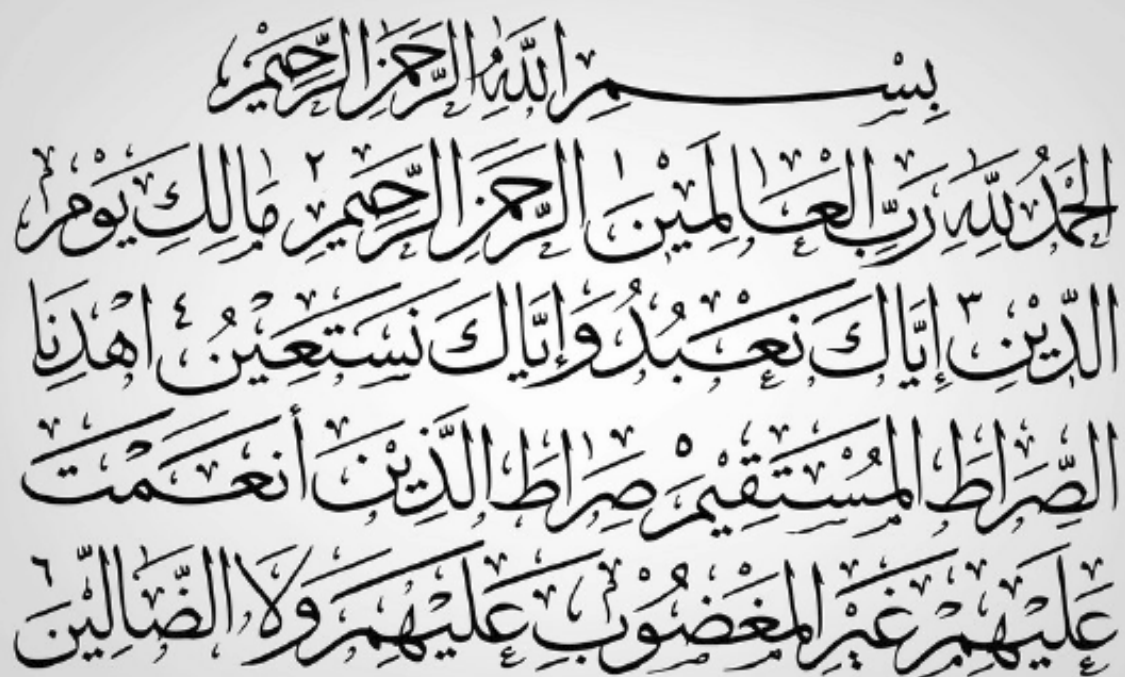 بِسْمِ اللَّهِ الرَّحْمَنِ الرَّحِيْمِ
الْحَمْدُ لِلَّهِ رَبِّ الْعَالَمِيْنَ ١ الرَّحْمَنِ الرَّحِيْمِ ٢ مَالِكِ يَوْمِ
الدِّيْنِ ٣ إِيَّاكَ نَعْبُدُ وَإِيَّاكَ نَسْتَعِيْنُ ٤ اهْدِنَا
الصِّرَاطَ الْمُسْتَقِيْمَ ٥ صِرَاطَ الَّذِيْنَ أَنْعَمْتَ
عَلَيْهِمْ غَيْرِ الْمَغْضُوْبِ عَلَيْهِمْ وَلَا الضَّالِّيْنَ ٦